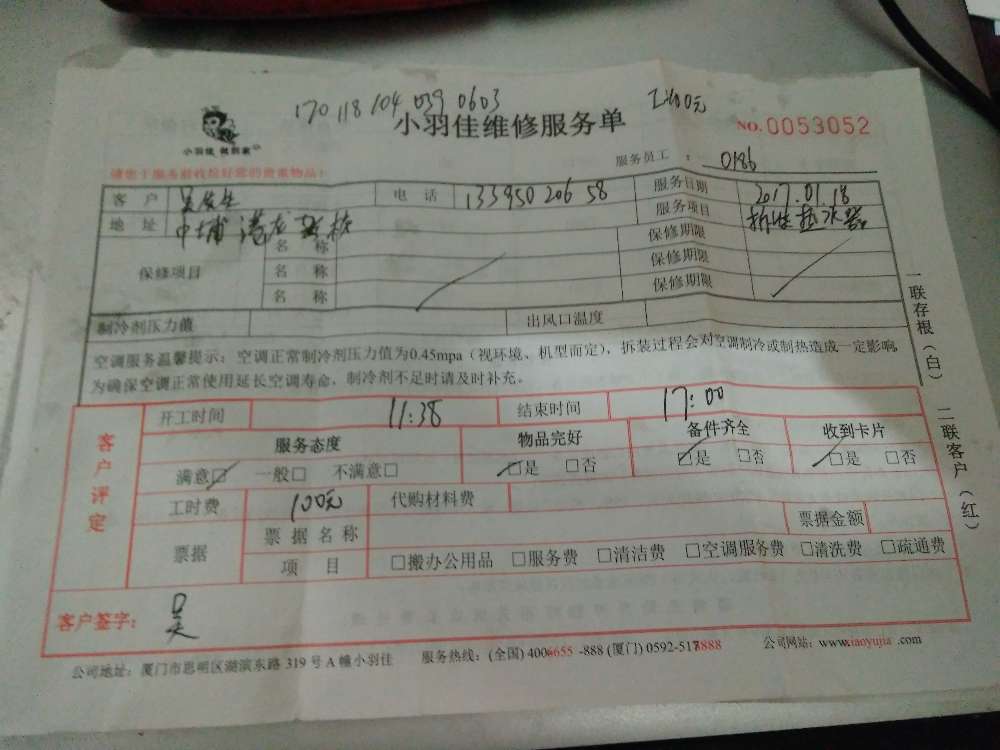 170118104 039 0603
小羽佳维修服务单
NO.0053052
小羽佳 做到家
服务员工 : 0186
请您于服务前收拾好您的贵重物品!
客 户 吴先生 电 话 13395020658 服务日期 2017.01.18
地 址 中埔 服务项目 拆装热水器
保修项目 名 称 保修期限
名 称 保修期限
名 称 保修期限
制冷剂压力值 出风口温度
空调服务温馨提示:空调正常制冷剂压力值为0.45mpa(视环境、机型而定),拆装过程会对空调制冷或制热造成一定影响,
为确保空调正常使用延长空调寿命,制冷剂不足时请及时补充。
一联存根(白) 二联客户(红)
客户评定
开工时间 11:38 结束时间 17:00
服务态度 物品完好 备件齐全 收到卡片
满意□ 一般□ 不满意□ □是 □否 □是 □否 □是 □否
工时费 100元 代购材料费
票据 票据名称 票据金额
项 目 □搬办公用品 □服务费 □清洁费 □空调服务费 □清洗费 □疏通费
客户签字: 吴
公司地址:厦门市思明区湖滨东路319号A幢小羽佳 服务热线:(全国) 4008655-888 (厦门) 0592-5178888 公司网站:www.iaoyujia.com